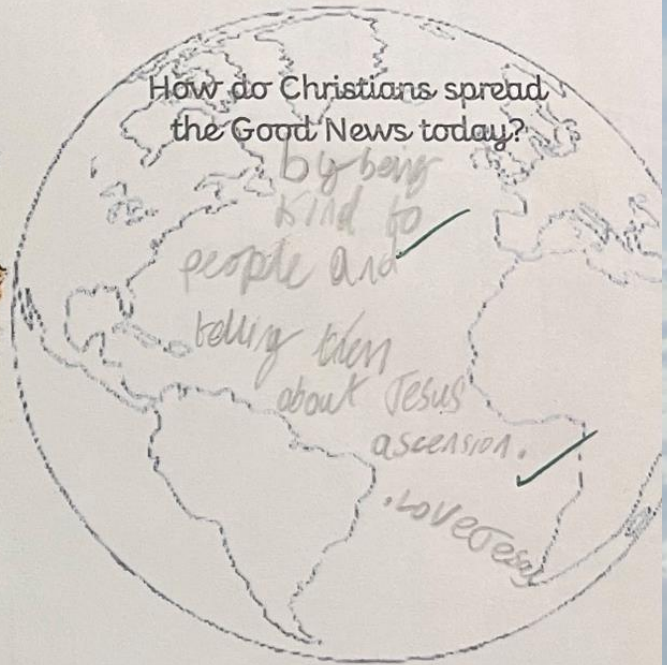 How do Christians spread
the Good News today?
by being
kind to
people and
telling them
about Jesus
ascension.
. Love Jesus